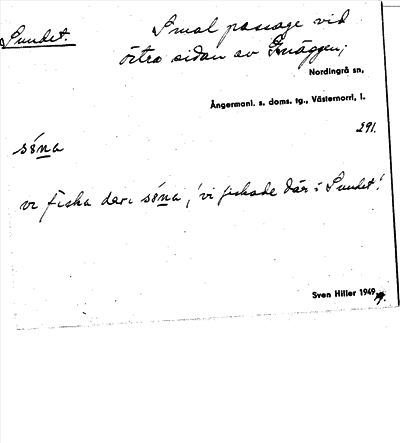 Sundet.
Smal passage vid
östra sidan av Knäggen,
Nordingrå sn,
Ångermanl. s. doms. tg., Västernorrl. l.
291.
söna
vi fiska där i söna, 'vi fiskade där i Sundet'.
Sven Hiller 1949